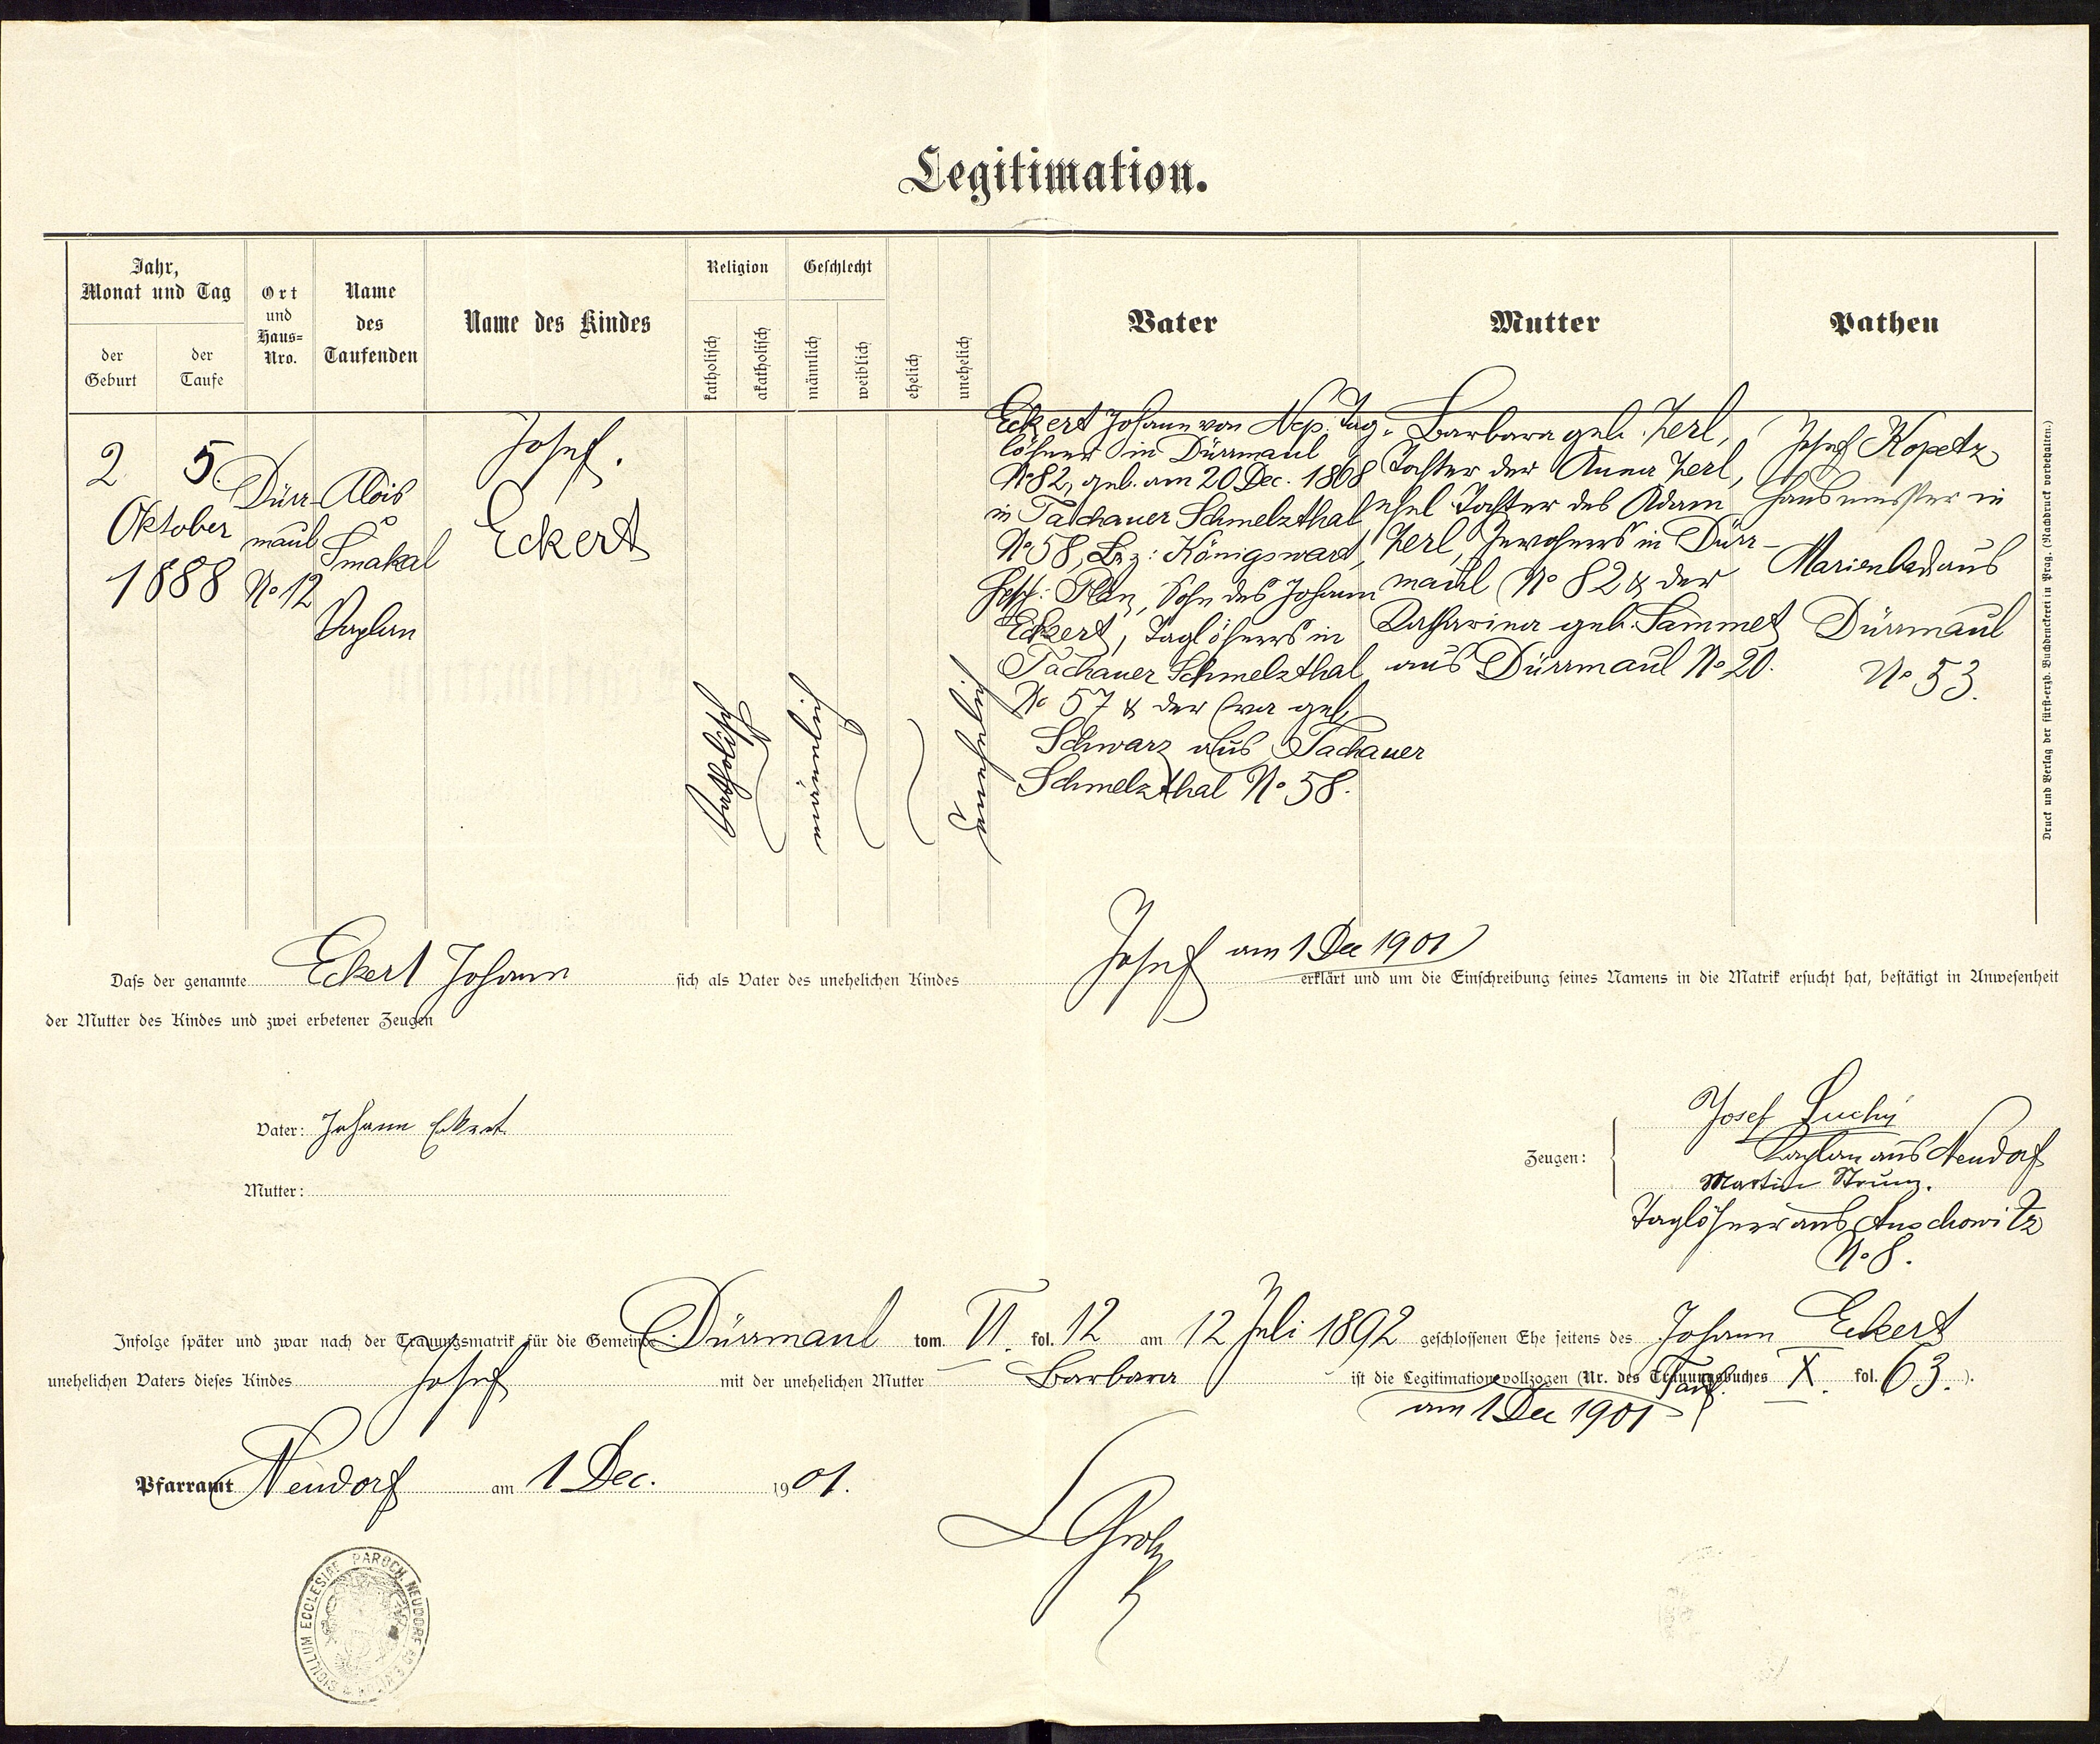 Legitimation.
Jahr,
Monat und Tag
der
Geburt
der
Taufe
Ort
und
Haus-
Nro.
Name
des
Taufenden
Name des Kindes
Religion
katholisch
akatholisch
Geschlecht
männlich
weiblich
ehelich
unehelich
Vater
Mutter
Pathen
2
5.
Oktober
1888
Dürr-
maul
No 12
Alois
Smakal
Kaplan
Josef.
Eckert
katholisch
männlich
unehelich
Eckert Johann von Nep. Tag-
löhner in Dürrmaul
No 82, geb. am 20 Dec. 1868
in Tachauer Schmelzthal
No 58, Bez: Königswart,
Hptsch: Plan, Sohn des Johann
Eckert, Taglöhners in
Tachauer Schmelzthal
No 57 & der Eva geb.
Schwarz aus Tachauer
Schmelzthal No 58.
Barbara geb. Zerl,
Tochter der Anna Zerl,
ehel. Tochter des Adam
Zerl, Inwohners in Dürr-
maul No 82 & der
Katharina geb. Sammet
aus Dürrmaul No 20.
Josef Kopetz
Hausmeister in
Marienbad aus
Dürrmaul
No 53.
Druck und Verlag der fürst-erzb. Buchdruckerei in Prag. (Nachdruck vorbehalten.)
Daß der genannte Eckert Johann sich als Vater des unehelichen Kindes Josef am 1 Dec 1901 erklärt und um die Einschreibung seines Namens in die Matrik ersucht hat, bestätigt in Anwesenheit
der Mutter des Kindes und zwei erbetener Zeugen
Vater: Johann Eckert
Mutter:
Zeugen:
Josef Suchý
Kaplan aus Neudorf
Martin Strunz.
Taglöhner aus Auschowitz
No 8.
Infolge später und zwar nach der Trauungsmatrik für die Gemeinde Dürrmaul tom. VI. fol. 12 am 12 Juli 1892 geschlossenen Ehe seitens des Johann Eckert
unehelichen Vaters dieses Kindes Josef mit der unehelichen Mutter Barbara ist die Legitimation vollzogen (Nr. des Trauungsbuches Tauf. X. fol. 63.).
am 1 Dec 1901
Pfarramt Neudorf am 1 Dec. 1901.
SIGILLUM ECCLESIAE PAROCH. NEUDORF